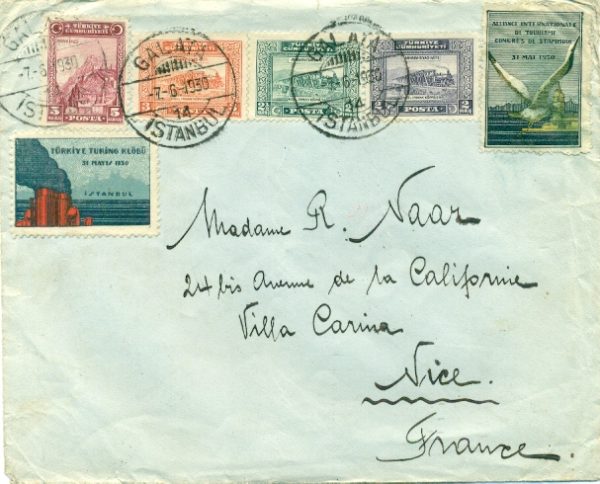 GALATA
-7-6-1930
İSTANBUL
TÜRKİYE
CÜMHURİYETİ
5 5
POSTA
GALATA
-7-6-1930
14
İSTANBUL
TÜRKİYE
CÜMHURİYETİ
POSTA
TÜRKİYE
CÜMHURİYETİ
2½
POSTA
GALATA
1930
14
İSTANBUL
TÜRKİYE
CÜMHURİYETİ
2
POSTA
ALLIANCE INTERNATIONALE
DE TOURISME
CONGRÈS DE STAMBOUL
31 MAI 1930
TÜRKİYE TURİNG KLÖBÜ
31 MAYIS 1930
İSTANBUL
Madame R. Naar
24 bis Avenue de la Californie
Villa Carina
Nice.
France.